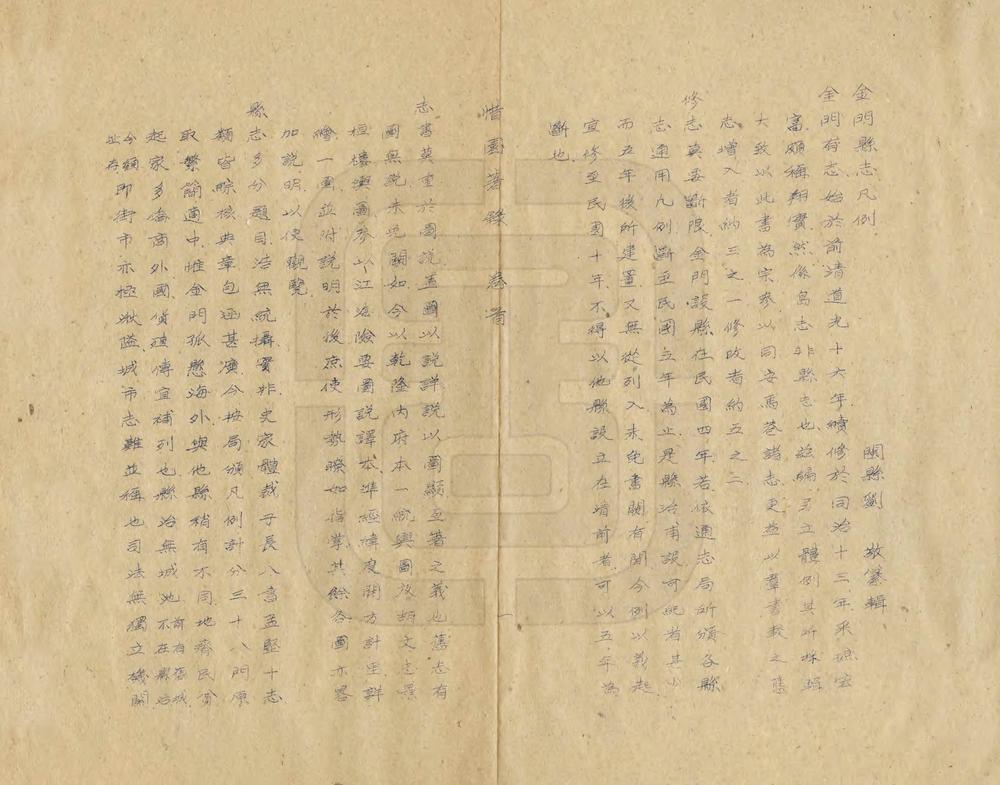 金門縣志凡例
閩縣劉 敬纂輯
金門有志始於前清道光十六年續修於同治十三年采摭宏
富頗稱翔實然係島志非縣志也茲編另立體例其所採輯
大致以此書為宗參以同安馬巷諸志更益以羣書較之舊
志增入者約三之一修改者約五之二
修志莫要斷限金門設縣在民國四年若依通志局所頒各縣
志通用凡例斷至民國立年為止是縣治甫設可紀者甚少
而五年後所建置又無從列入未免書闕有間今例以義起
宜修至民國十年不得以他縣設立在清前者可以五年為
斷也
惜園著錄 卷首
一
志書莫重於圖說蓋圖以說詳說以圖顯互著之義也舊志有
圖無說未免闕如今以乾隆內府本一統輿圖及胡文忠景
桓樓輿圖參以江海險要圖說譯本準經緯度開方計里詳
繪一圖並附說明於後庶使形勢瞭如指掌其餘各圖亦畧
加說明以便觀覽
縣志多分題目浩無統攝實非史家體裁子長八書孟堅十志
類皆綜核典章包涵甚廣今按局頒凡例計分三十八門原
取繁簡適中惟金門孤懸海外與他縣稍有不同地瘠民貧
起家多僑商外國貨殖傳宜補列也縣治無城池前有舊城不在縣治
今額址存即街市亦極湫隘城市志難並稱也司法無獨立機關